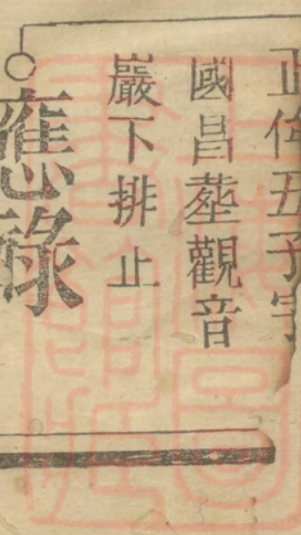 正仕五子字
國昌塟觀音
巖下排止
應祿